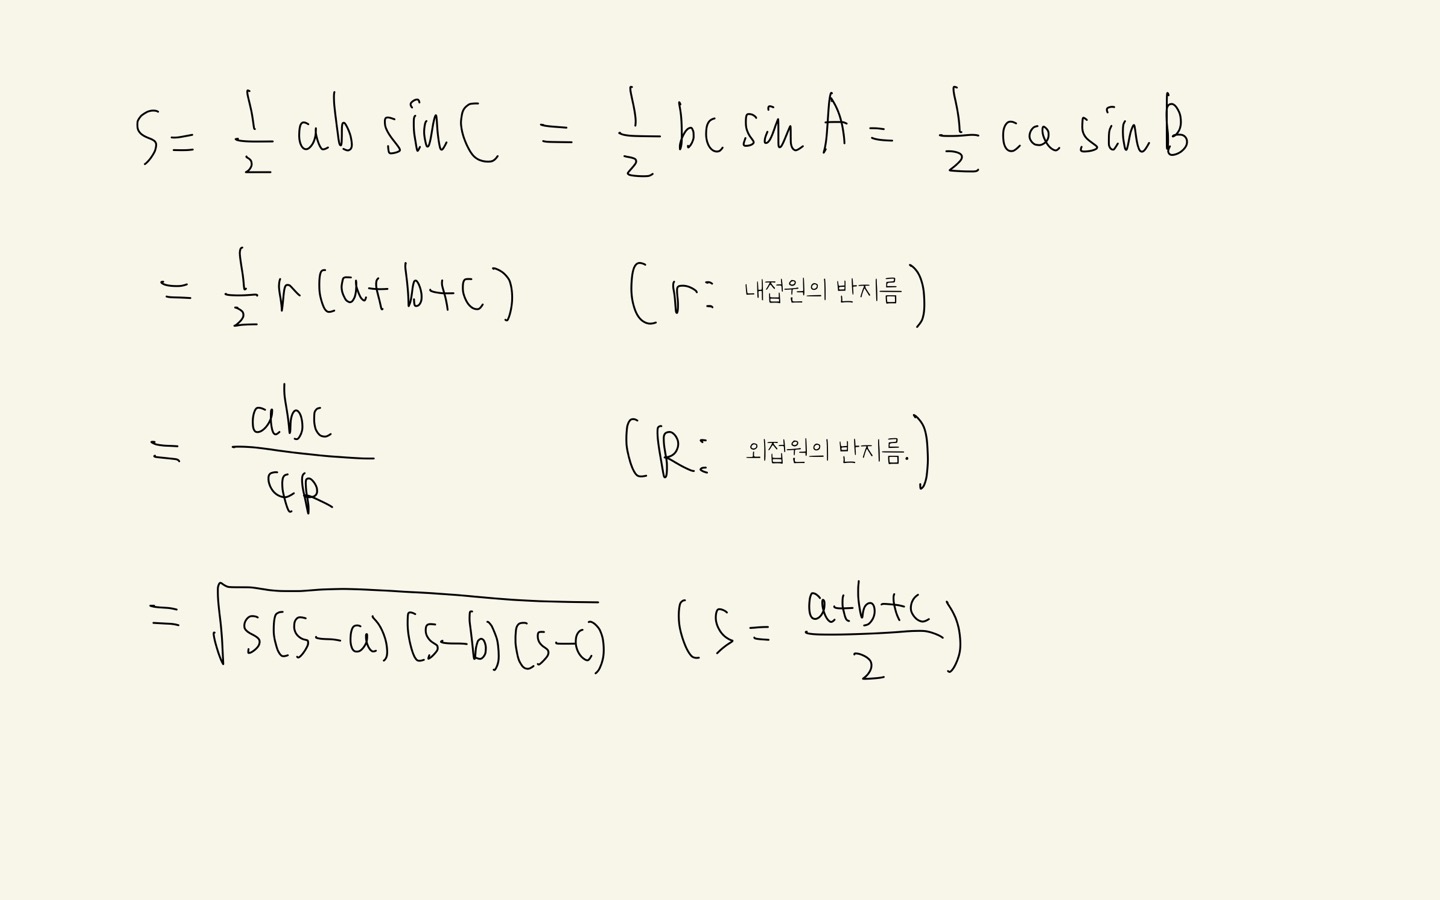 S = 1/2 ab sin C = 1/2 bc sin A = 1/2 ca sin B
= 1/2 r (a+b+c) (r: 내접원의 반지름)
= abc/4R (R: 외접원의 반지름.)
= √(s(s-a)(s-b)(s-c)) (s = (a+b+c)/2)